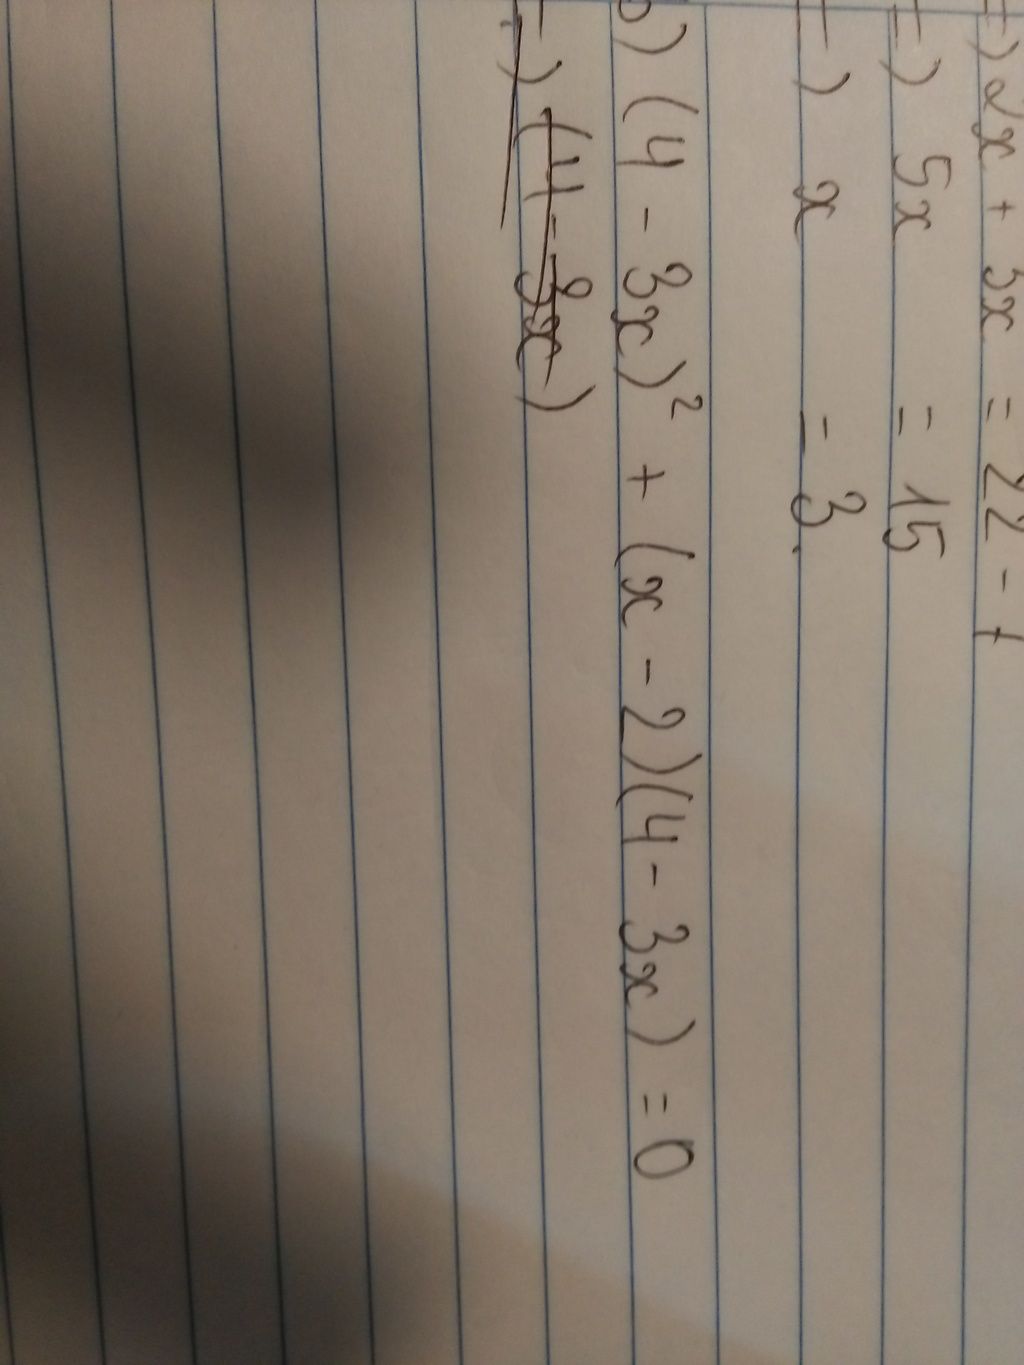 =) 2x + 3x = 22 - 7
=) 5x = 15
=) x = 3.
b) (4 - 3x)² + (x - 2)(4 - 3x) = 0
=) (4 - 3x)